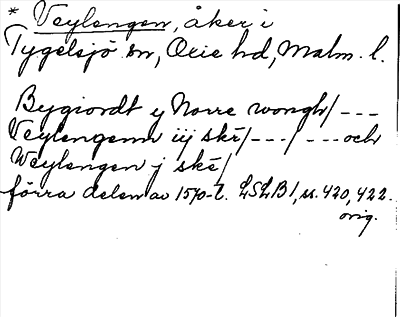 * Veylengen, åker i
Tygelsjö sn, Oxie hd, Malm. l.
Bygiordt y Norre wongh/ ---
Veylengenn iij skr/ ---/ --- och
Weylengen j skr/
förra delen av 1570-t. LSLB 1, ss. 420, 422.
orig.